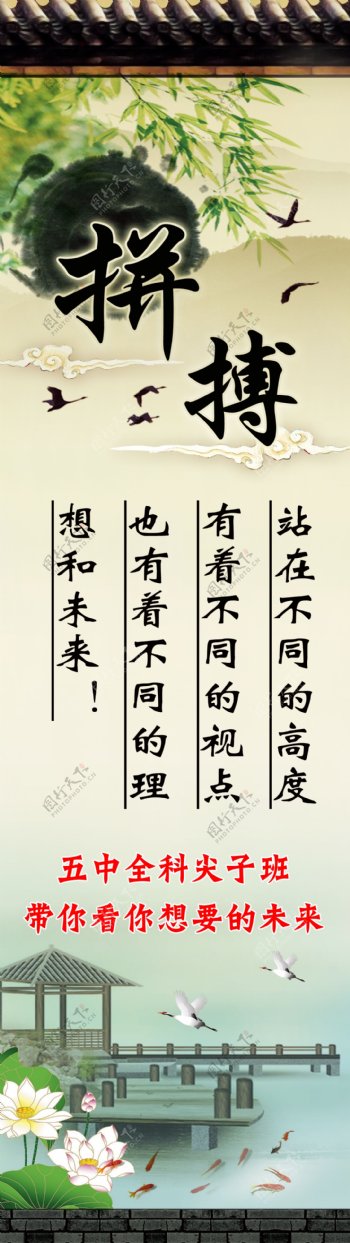 拼搏
站在不同的高度
有着不同的视点
也有着不同的理
想和未来！
五中全科尖子班
带你看你想要的未来
图行天下
PHOTOPHOTO.CN